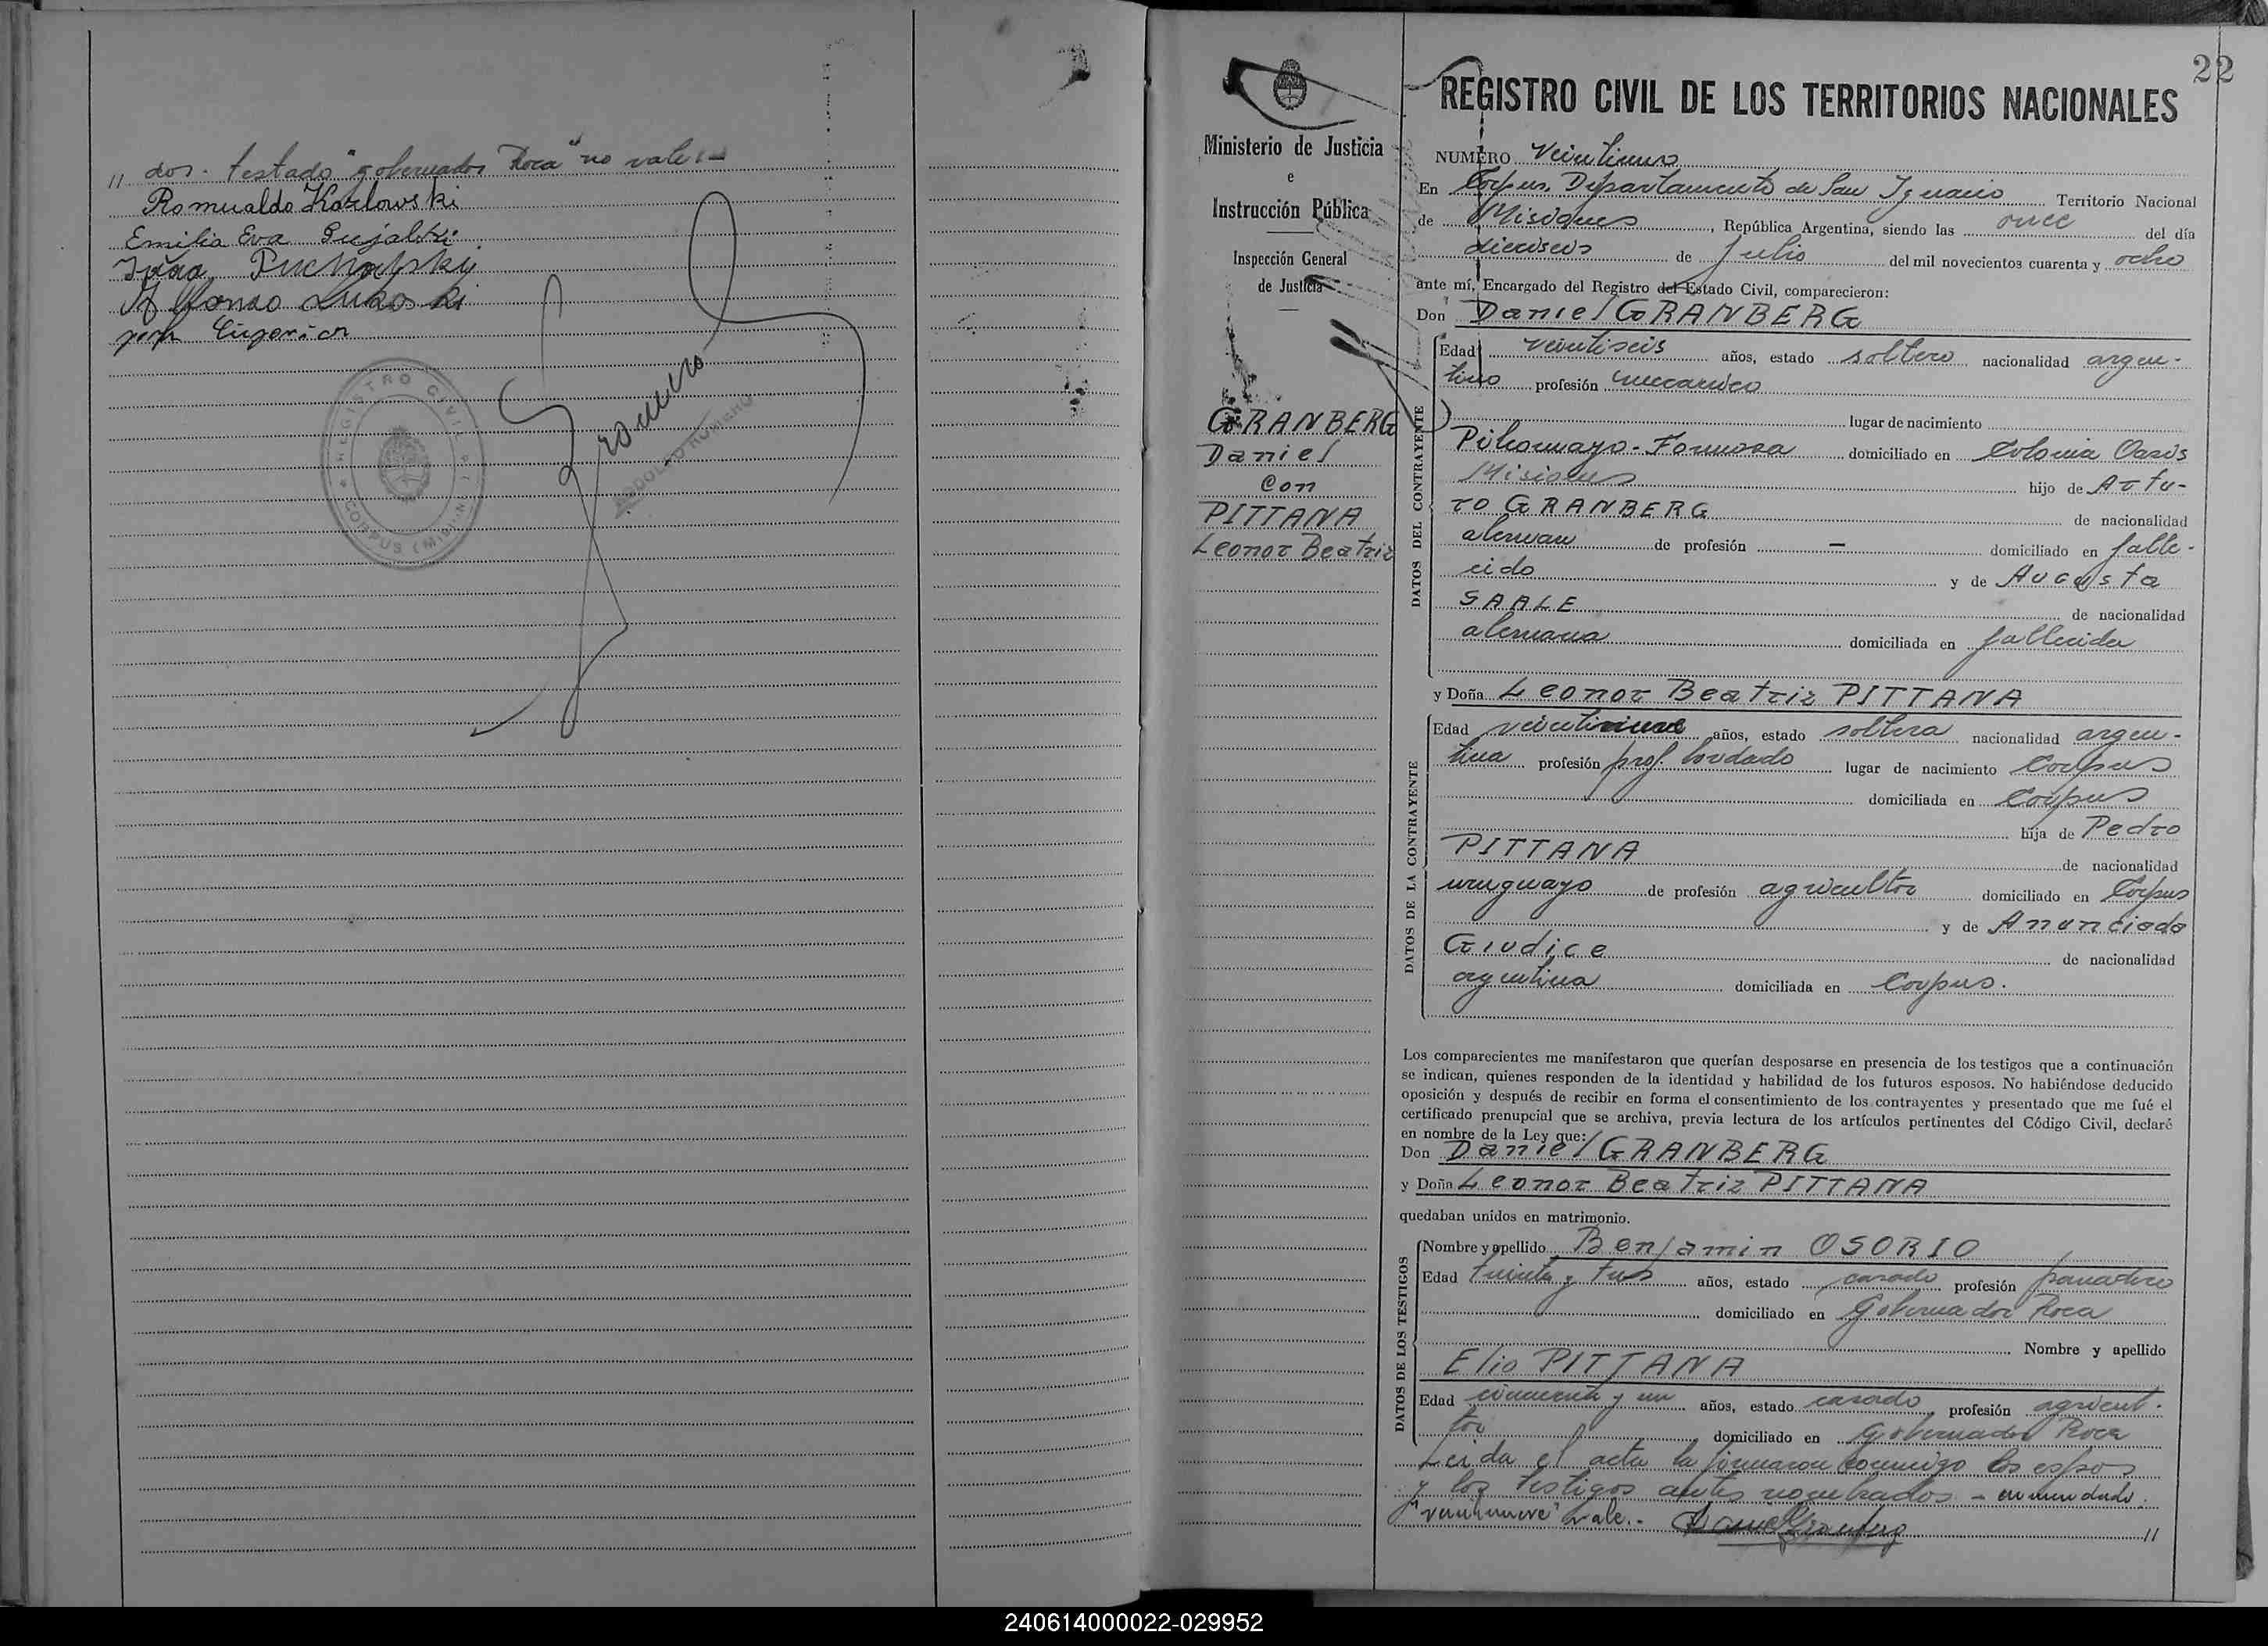 " dos. testado "gobernador Roca" no vale:-
Romualdo Kozlowski
Emilia Eva
Puchalsky
Alfonso Lukoski
REGISTRO CIVIL
CORPUS (MISIONES)
Romero
ADOLFO ROMERO
22
Ministerio de Justicia
e
Instrucción Pública
Inspección General
de Justicia
GRANBERG
Daniel
Con
PITTANA
Leonor Beatriz
REGISTRO CIVIL DE LOS TERRITORIOS NACIONALES
NUMERO Veintiuno
En Corpus, Departamento de San Ignacio Territorio Nacional
de Misiones, República Argentina, siendo las once del día
dieciseis de Julio del mil novecientos cuarenta y ocho
ante mí, Encargado del Registro del Estado Civil, comparecieron:
Don Daniel GRANBERG
DATOS DEL CONTRAYENTE
Edad veintiseis años, estado soltero nacionalidad argen-
tino profesión mecanico
lugar de nacimiento
Pilcomayo-Formosa domiciliado en Colonia Oasis
Misiones hijo de Artu-
ro GRANBERG de nacionalidad
aleman de profesión — domiciliado en falle-
cido y de Augusta
SAALE de nacionalidad
alemana domiciliada en fallecida
y Doña Leonor Beatriz PITTANA
DATOS DE LA CONTRAYENTE
Edad veintinueve años, estado soltera nacionalidad argen-
tina profesión prof. bordado lugar de nacimiento Corpus
domiciliada en Corpus
hija de Pedro
PITTANA de nacionalidad
uruguayo de profesión agricultor domiciliado en Corpus
y de Anunciada
Giudice de nacionalidad
argentina domiciliada en Corpus.
Los comparecientes me manifestaron que querían desposarse en presencia de los testigos que a continuación
se indican, quienes responden de la identidad y habilidad de los futuros esposos. No habiéndose deducido
oposición y después de recibir en forma el consentimiento de los contrayentes y presentado que me fué el
certificado prenupcial que se archiva, previa lectura de los artículos pertinentes del Código Civil, declaré
en nombre de la Ley que:
Don Daniel GRANBERG
y Doña Leonor Beatriz PITTANA
quedaban unidos en matrimonio.
DATOS DE LOS TESTIGOS
Nombre y apellido Benjamin OSORIO
Edad treinta y tres años, estado casado profesión panadero
domiciliado en Gobernador Roca
Nombre y apellido
Elio PITTANA
Edad cincuenta y un años, estado casado profesión agricul-
tor domiciliado en Gobernador Roca
Leida el acta la firmaron conmigo los esposos
y los testigos antes nombrados - enmendado:
"veintinueve" vale.- Daniel Granberg "
240614000022-029952